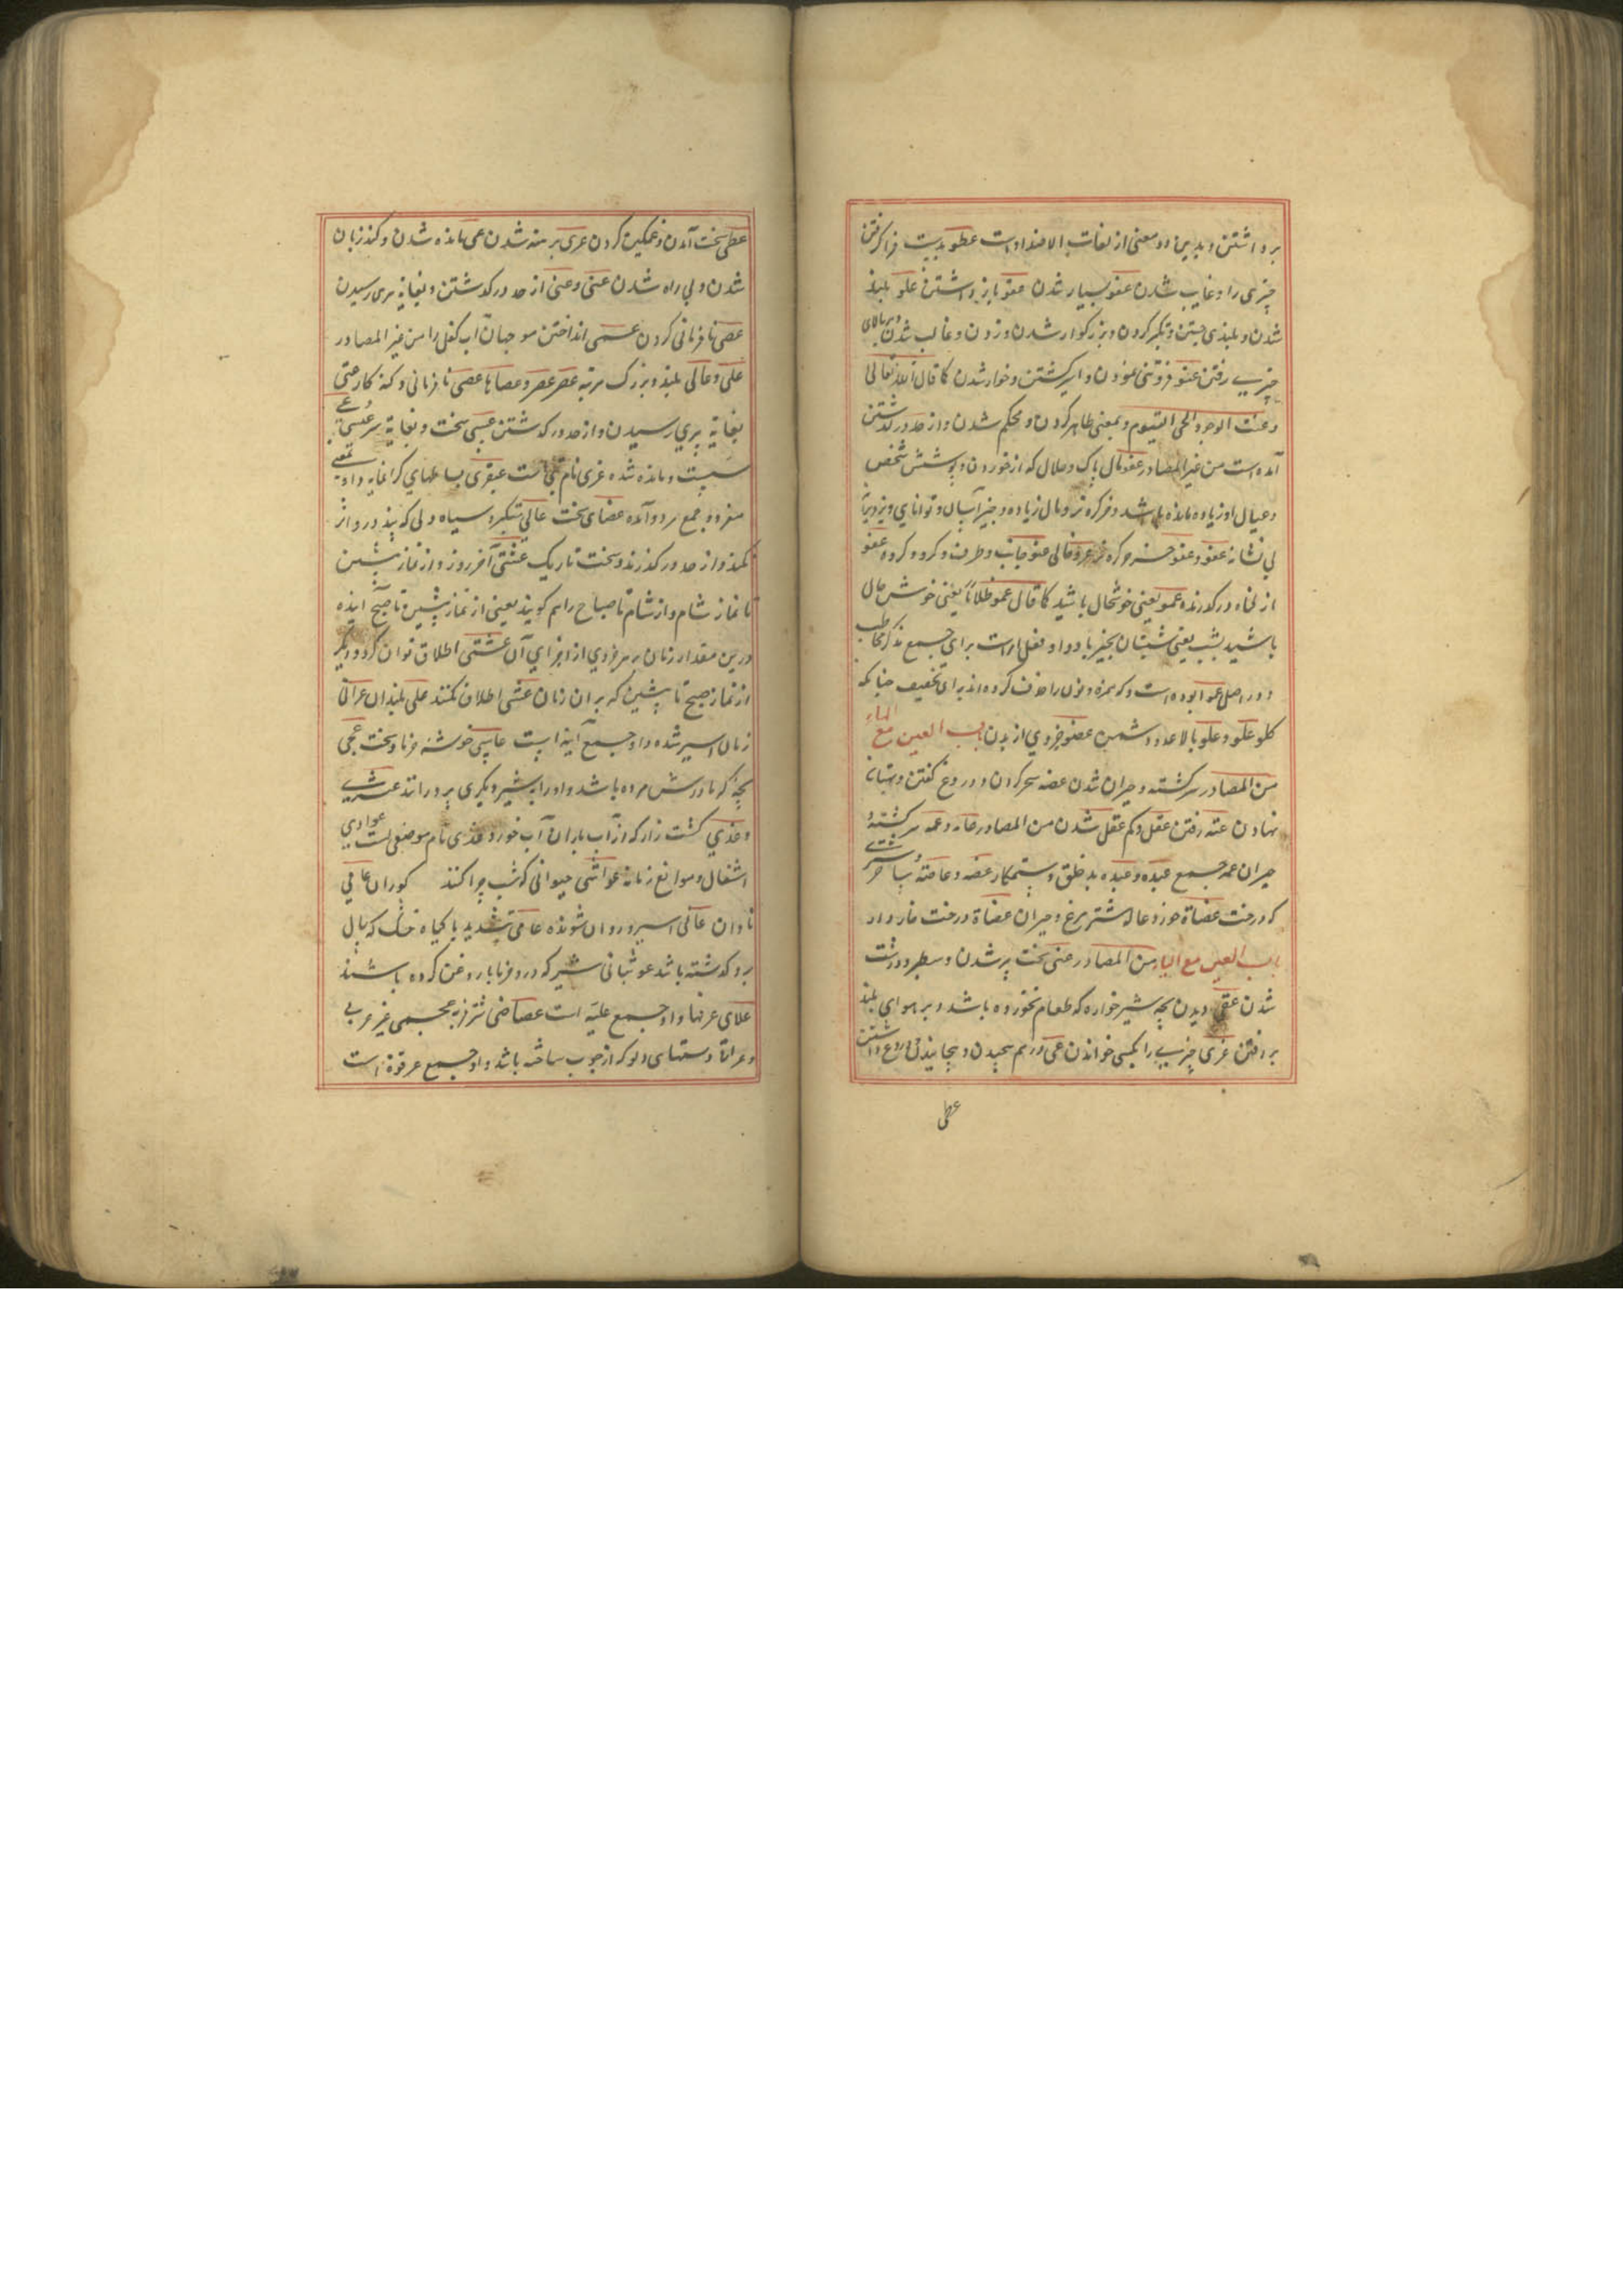 برداشتن و بدین دو معنی از لغات الاضداد است عطو بدست فرا گرفتن
چیزی را و غایب شدن عفو بسیار شدن عفو باز داشتن علو بلند
شدن و بلندی جستن و تکبر کردن و بزرگوار شدن و زدن و غالب شدن و بر بالای
چیزی رفتن عنو فروتنی نمودن و اسیر گشتن و خوار شدن کما قال الله تعالی
وعنت الوجوه للحی القیوم و بمعنی ظاهر کردن و محکم شدن و از حد در گذشتن
آمده است من غیر المصادر عفو مال پاک و حلال که از خوردن و پوشش شخص
و عیال او زیاده مانده باشد و خر کره نر و مال زیاده و چیز آسان و توانایی و
بی نشانه عفو و عفو خر کره نر عرو خالی عنو جانب و طرف و کرد و کروه عفو
از کناه در کذرنده عمو یعنی خوشحال باشید کما قال عمو ظلاما یعنی خوش حال
باشید بشب یعنی شبتان بخیر باد و او فعل امر است برای جمع مذکر مخاطب
و در اصل بوده است و که همزه و نون را حذف کرده اند برای تخفیف چنانکه
کلو علو و علو بالا عدو دشمن عضو جزوی از بدن باب العین مع الهاء
من المصادر سرکشته و حیران شدن عضه سحر کردن و دروغ کفتن و بهتان
نهادن عته رفتن عقل و کم عقل شدن من المصادر عامه و عمه سرکشته و
حیران عمه جمع عیده و عیده بد خلق و ستمکار عضه و عاضه
که درخت عضاة خورد عاله شتر مرغ و حیران عضاة درخت خار دار
باب العین مع الیاء من المصادر عنی سخت پر شدن و سطبر و درشت
شدن عقی ریدن بچه شیر خواره که طعام نخورده باشد و بر هوای بلند
بر رفتن عزی چیزی را بکسی خواندن عی در هم پیچیدن و پیچانیدن و دروغ داشتن
عطی
عطی سخت آمدن و غمکین کردن عری برهنه شدن عی مانده شدن و کند زبان
شدن و بی راه شدن عتی و عتی از حد در کذشتن و بغایة پری رسیدن
عصی نافرمانی کردن عمی انداختن موج آب کفک را من غیر المصادر
علی و عالی بلند و بزرک مرتبه عصی نافرمانی و کنه کار عتی
بغایة پری رسیدن و از حد در کذشتن عسی سخت و بغایة
سست و مانده شده عزی نام بتی است عبقری بساطهای کرانمایه و او بمعنی
مفرد و جمع هر دو آمده عضای سخت عاتی متکبر و سیاه دلی که پند در و اثر
نکند و از حد در کذرنده و سخت تاریک عشی آخر روز و از نماز پیشین
تا نماز شام و از شام تا صباح را هم کویند یعنی از نماز پیشین تا صبح آینده
درین مقدار زمان بر هر جزوی از اجزای آن عشی اطلاق توان کرد و دیکر
از نماز صبح تا پیشین که بر ان زمان عشی اطلاق نکنند علی بلندان عوانی
زنان اسیر شده و او جمع آینه است عاسی خوشه خرما و سخت عجی
بچه که مادرش مرده باشد و او را بشیر دیکری پرورانند عشری
و عذی کشت زار که از آب باران آب خورد عذی نام موضعی است عوادی
اشغال و موانع زمانه عواشی حیوانی که شب چرا کنند کوران عامی
نادان عانی اسیر و روان شونده عامی بتشدید یا کیاه خشک که سال
برو کذشته باشد عوثبانی شیر که در و خرما بار وغن کرده باشند
علالی عرفها و او جمع علیه است عجمی غیر عربی
و عراقی دستهای دلو که از چوب ساخته باشد و او جمع عرقوة است